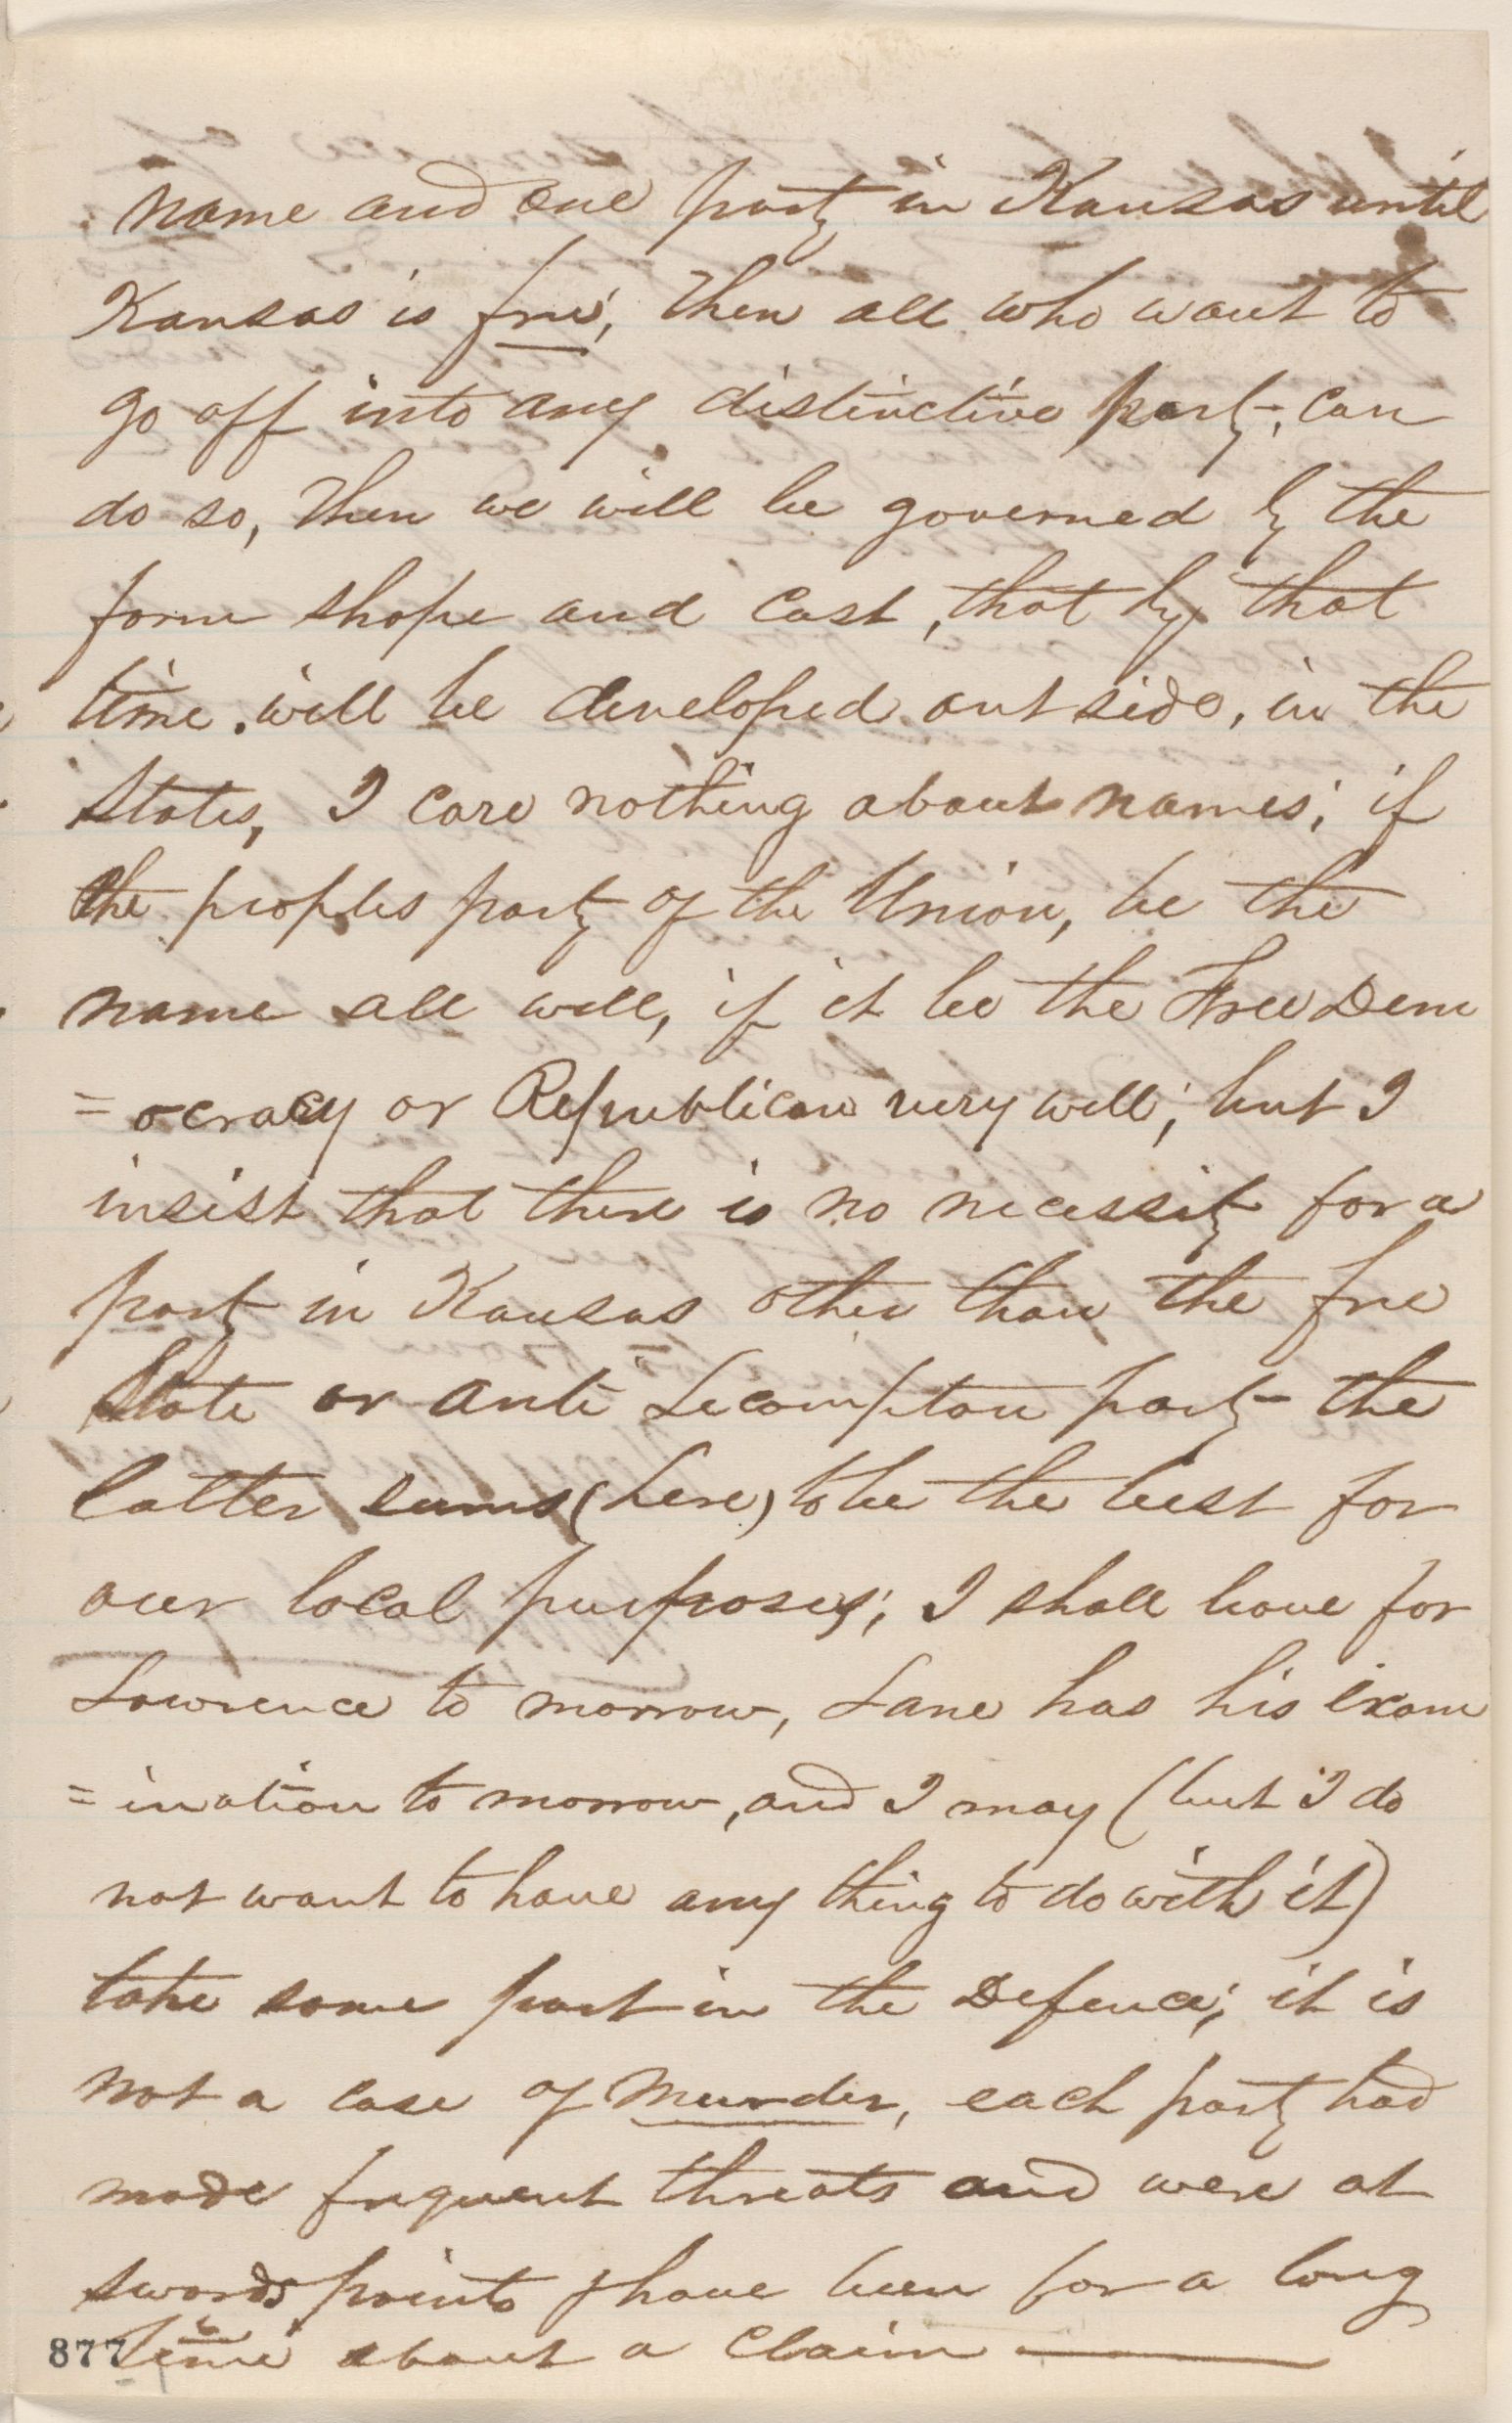 name and one party in Kansas until
Kansas is free; then all who want to
go off into any distinctive party, can
do so, then we will be governed by the
form shape and cast, that by that
time will be developed outside, in the
States, I care nothing about names; if
the peoples party of the Union, be the
name all well, if it be the Free Dem
=ocracy or Republican very well; but I
insist that there is no necessity for a
party in Kansas other than the free
State or anti Lecompton party - the
latter seems (here) to be the best for
our local purposes; I shall leave for
Lawrence to morrow, Lane has his exam
=ination to morrow, and I may (but I do
not want to have any thing to do with it)
take some part in the Defence; it is
not a case of murder, each party had
made frequent threats and were at
swords points & have been for a long
time about a claim —
877